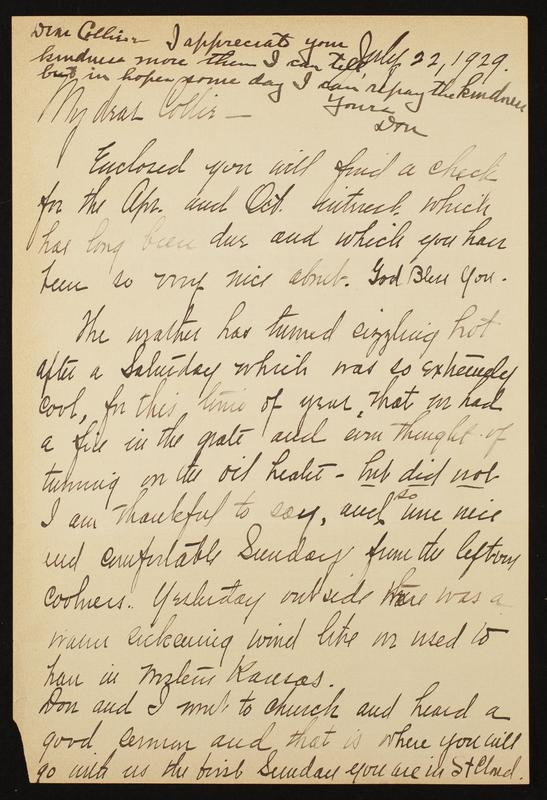 Dear Collier I appreciate your
kindness more then I can tell
but in hopes some day I can repay the kindness
Yours
Don
July 22, 1929.
My dear Collie —
Enclosed you will find a check
for the Apr. and Oct. interest which
has long been due and which you have
been so very nice about. God Bless You.
The weather has turned sizzling hot
after a Saturday which was so extremely
cool, for this time of year, that we had
a fire in the grate and even thought of
turning on the oil heater - but did not
I am thankful to say, and so were nice
and comfortable Sunday from the left over
coolness. Yesterday outside there was a
warm sickening wind like we used to
have in Western Kansas.
Don and I went to church and heard a
good sermon and that is where you will
go with us the first Sunday you are in St Cloud.